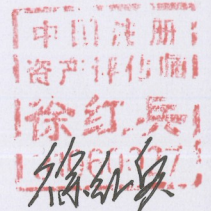 中国注册
资产评估师
徐红兵
徐红兵